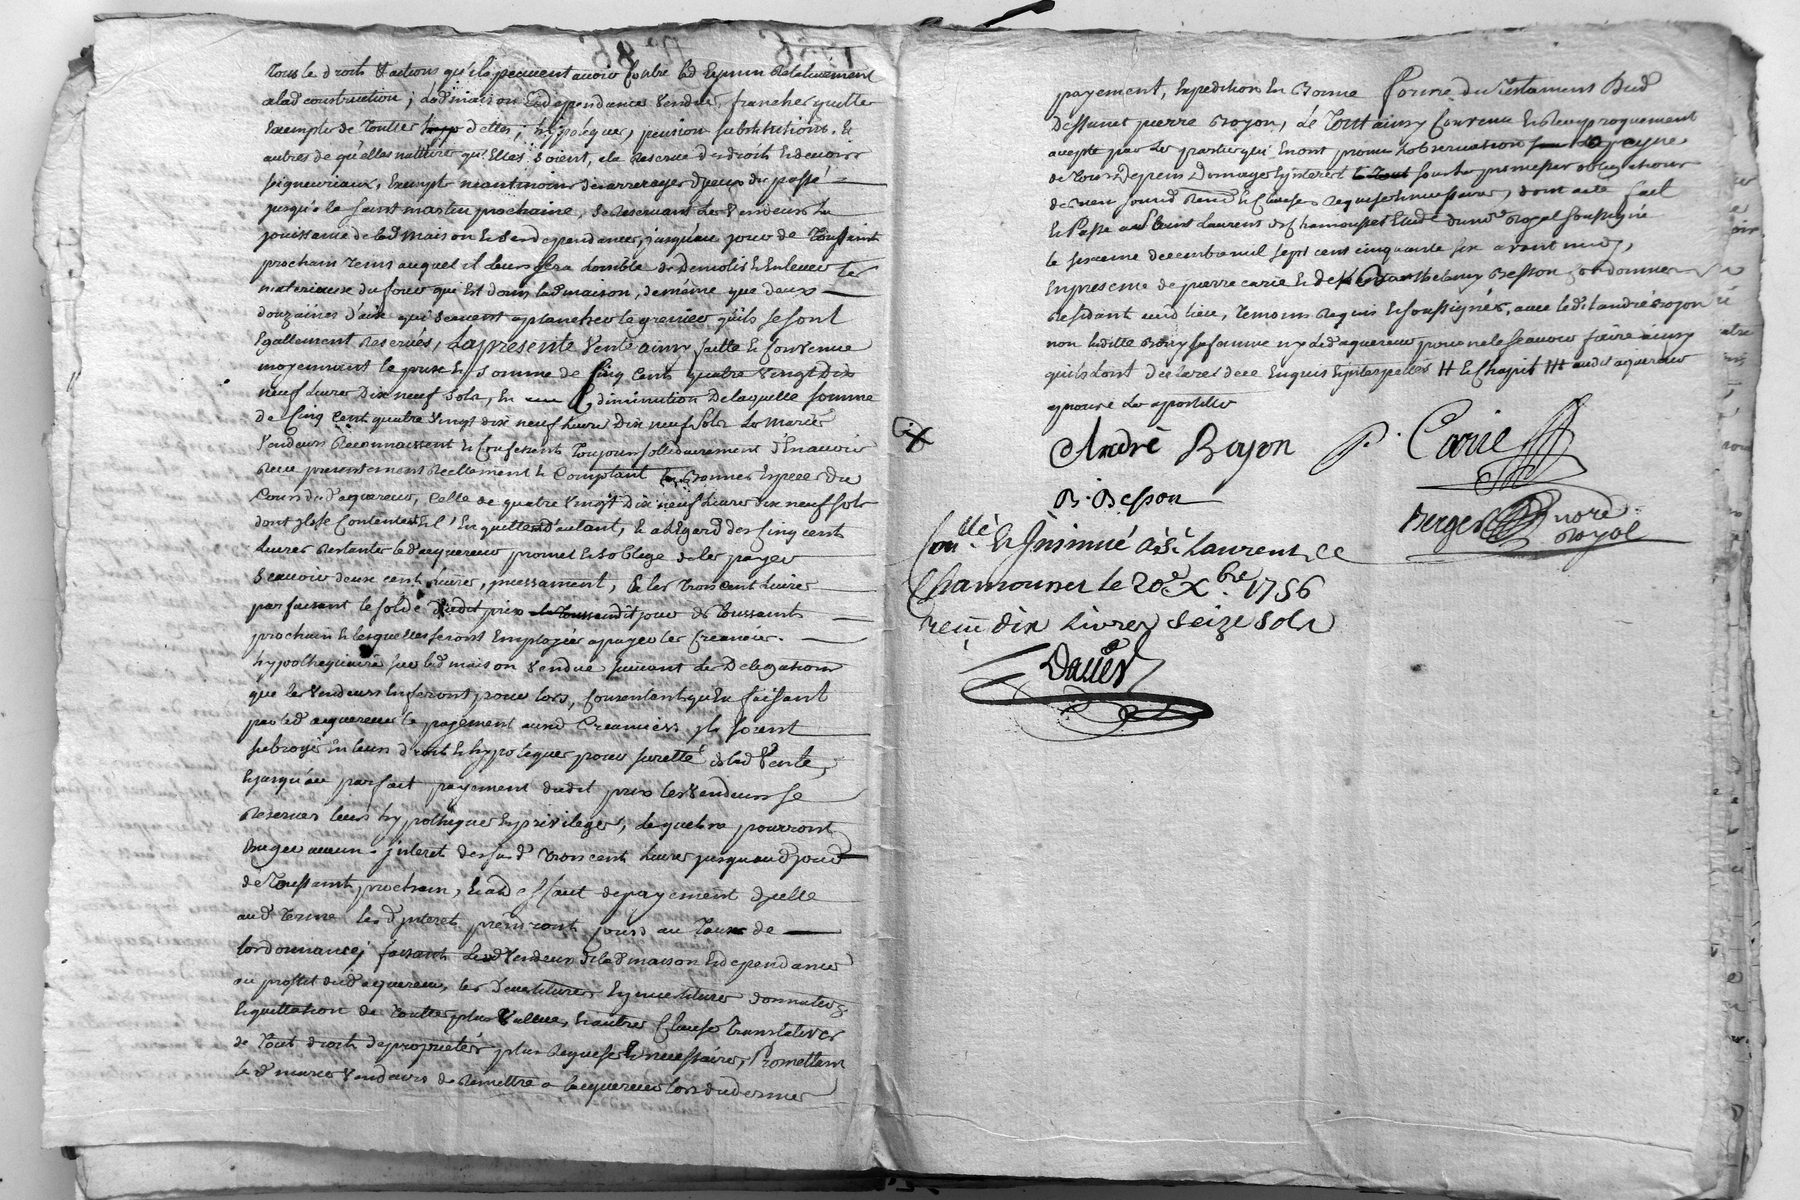 Tous le droits & actions qu'ils peuvent avoir contre led relativement
alad construction; lad maison & dependance vendue, franche quitte
exempte de toutes dettes, hypoteques, pension substitutions &
autres de quelles natture qu'elles soient, à la reserve des droits & devoirs
seigneuriaux, exempts neantmoins d'arrerages d'yceux du passé
jusqu'a la saint martin prochaine, se reservant les vendeurs la
jouissance de lad maison & ses dependances, jusqu'au jour de Toussaint
prochain tems auquel il leur sera loisible de demolir & enlever les
materiaux du four qui est dans lad maison, de même que deux
douzaines d'aix qui servent a plancher le grenier qu'ils se sont
egallement reservés, La presente vente ainsy faitte & convenue
moyennant le prix & somme de cinq cents quatre vingt dix
neuf livres dix neuf sols, en diminution de laquelle somme
de cinq cent quatre vingt dix neuf livres dix neuf sols les mariés
vendeurs reconnaissent & confessent toujours sollidairement d'en avoir
receu presentement reellement & comptant en bonnes especes du
cours dud acquereur, celle de quatre vingt dix neuf livres dix neuf sols
dont ils se contentent & l'en quittent d'autant, & a l'egard des cinq cent
livres restantes led acquereur promet & s'oblige de les payer
sçavoir deux cent livres, incessament, & les trois cent livres
parfaisant le solde dudit prix audit jour de Toussaint
prochain & lesquelles seront employées a payer les creanciers
hypothequaires sur lad maison vendue suivant les delegations
que les vendeurs en feront, pour lors, consentant qu'en faisant
par led acquereur le payement auxd creanciers ils soient
subrogés en leurs droits & hypoteques pour suretté de lad vente,
& jusqu'au parfait payement dudit prix les vendeurs se
reservent leurs hypotheques & privileges, lesquels ne pourront
exiger aucun interet desd trois cent livres jusqu'aud jour
de Toussaint prochain, & a deffaut de payement d'ycelle
aud terme les d interets prendront cours au taux de
l'ordonnance; faisant lesd vendeurs de lad maison & dependance
au proffit dud acquereur, les devestitures & investitures donnation
& quittation de toutes plus vallue, & autres clauses translatives
de tout droits de proprietés plus requises & necessaires, Promettant
les d mariés vendeurs de remettre a l'acquereur lors du dernier
payement, expedition en bonne forme du testament dud
deffunt pierre Boyon, Le tout ainsy convenu & reciproquement
accepté par les parties qui en ont promis l'observation a peyne
de tous depens domages & interets sous les promesses obligations
de biens soumis renon & clauses requises & necessaires, dont acte fait
& Passé a St Laurens de Chamousset Etude du nore Royal soussigné
le sixieme decembre mil sept cent cinquante six avant midy,
en presence de pierre carié & de Barthelemy Besson, cordonniers
residants aud lieu, temoins requis & soussignés, avec ledit andré Boyon
non ladille sa femme ny led acquereur pour ne le sçavoir faire ainsy
qu'ils l'ont declaré de ce enquis & interpellés H & Chapit HH audit aquereur
aprouvé les apostilles
André Boyon P. Carié
B. Besson
Berger nore Royal
Conllé & Insinué a St Laurent de
Chamousset le 20e Xbre 1756
receu dix Livres seize sols